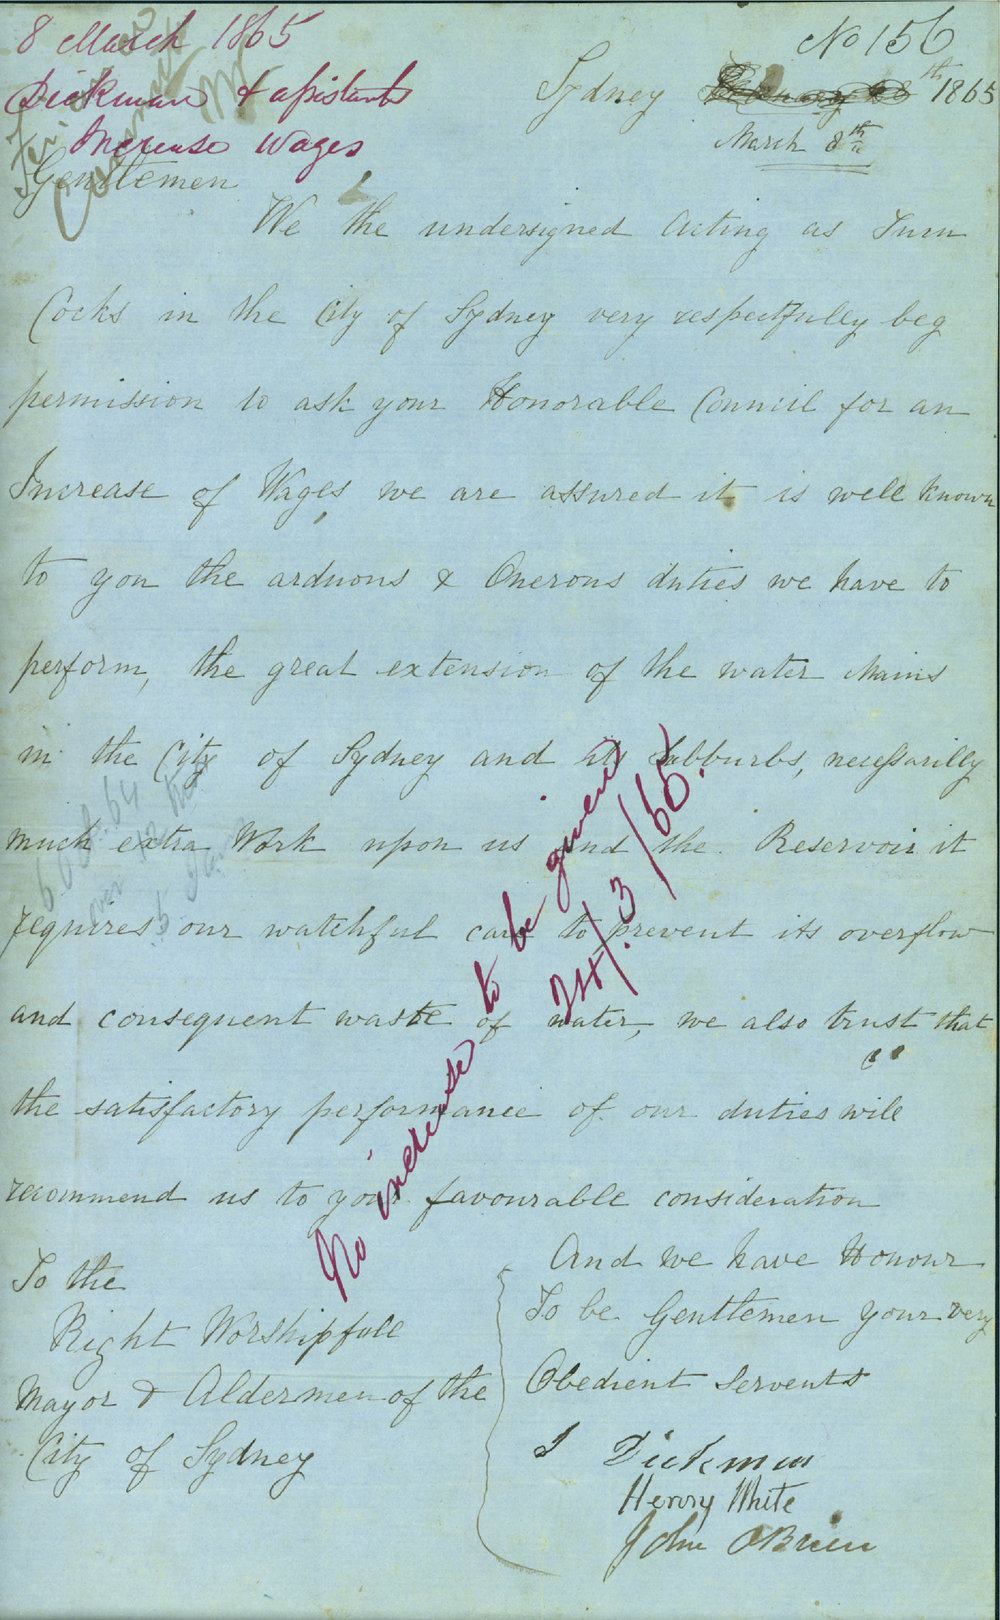 8 March 1865
Dickman & assistants
Increase Wages
No 156
Sydney February 28th 1865
March 8th
Gentlemen
We the undersigned Acting as Turn
Cocks in the City of Sydney very respectfully beg
permission to ask your Honorable Council for an
Increase of Wages we are assured it is well known
to you the arduous & Onerous duties we have to
perform, the great extension of the water Mains
in the City of Sydney and its Subburbs, necessarilly
much extra Work upon us and the Reservoir it
requires our watchful care to prevent its overflow
and consequent waste of water, we also trust that
the satisfactory performance of our duties will
recommend us to your favourable consideration
No increase to be given
24/3/65.
And we have Honour
To be Gentlemen your very
Obedient Servents
To the
Right Worshipfull
Mayor & Aldermen of the
City of Sydney
J Dickman
Henry White
John OBrien